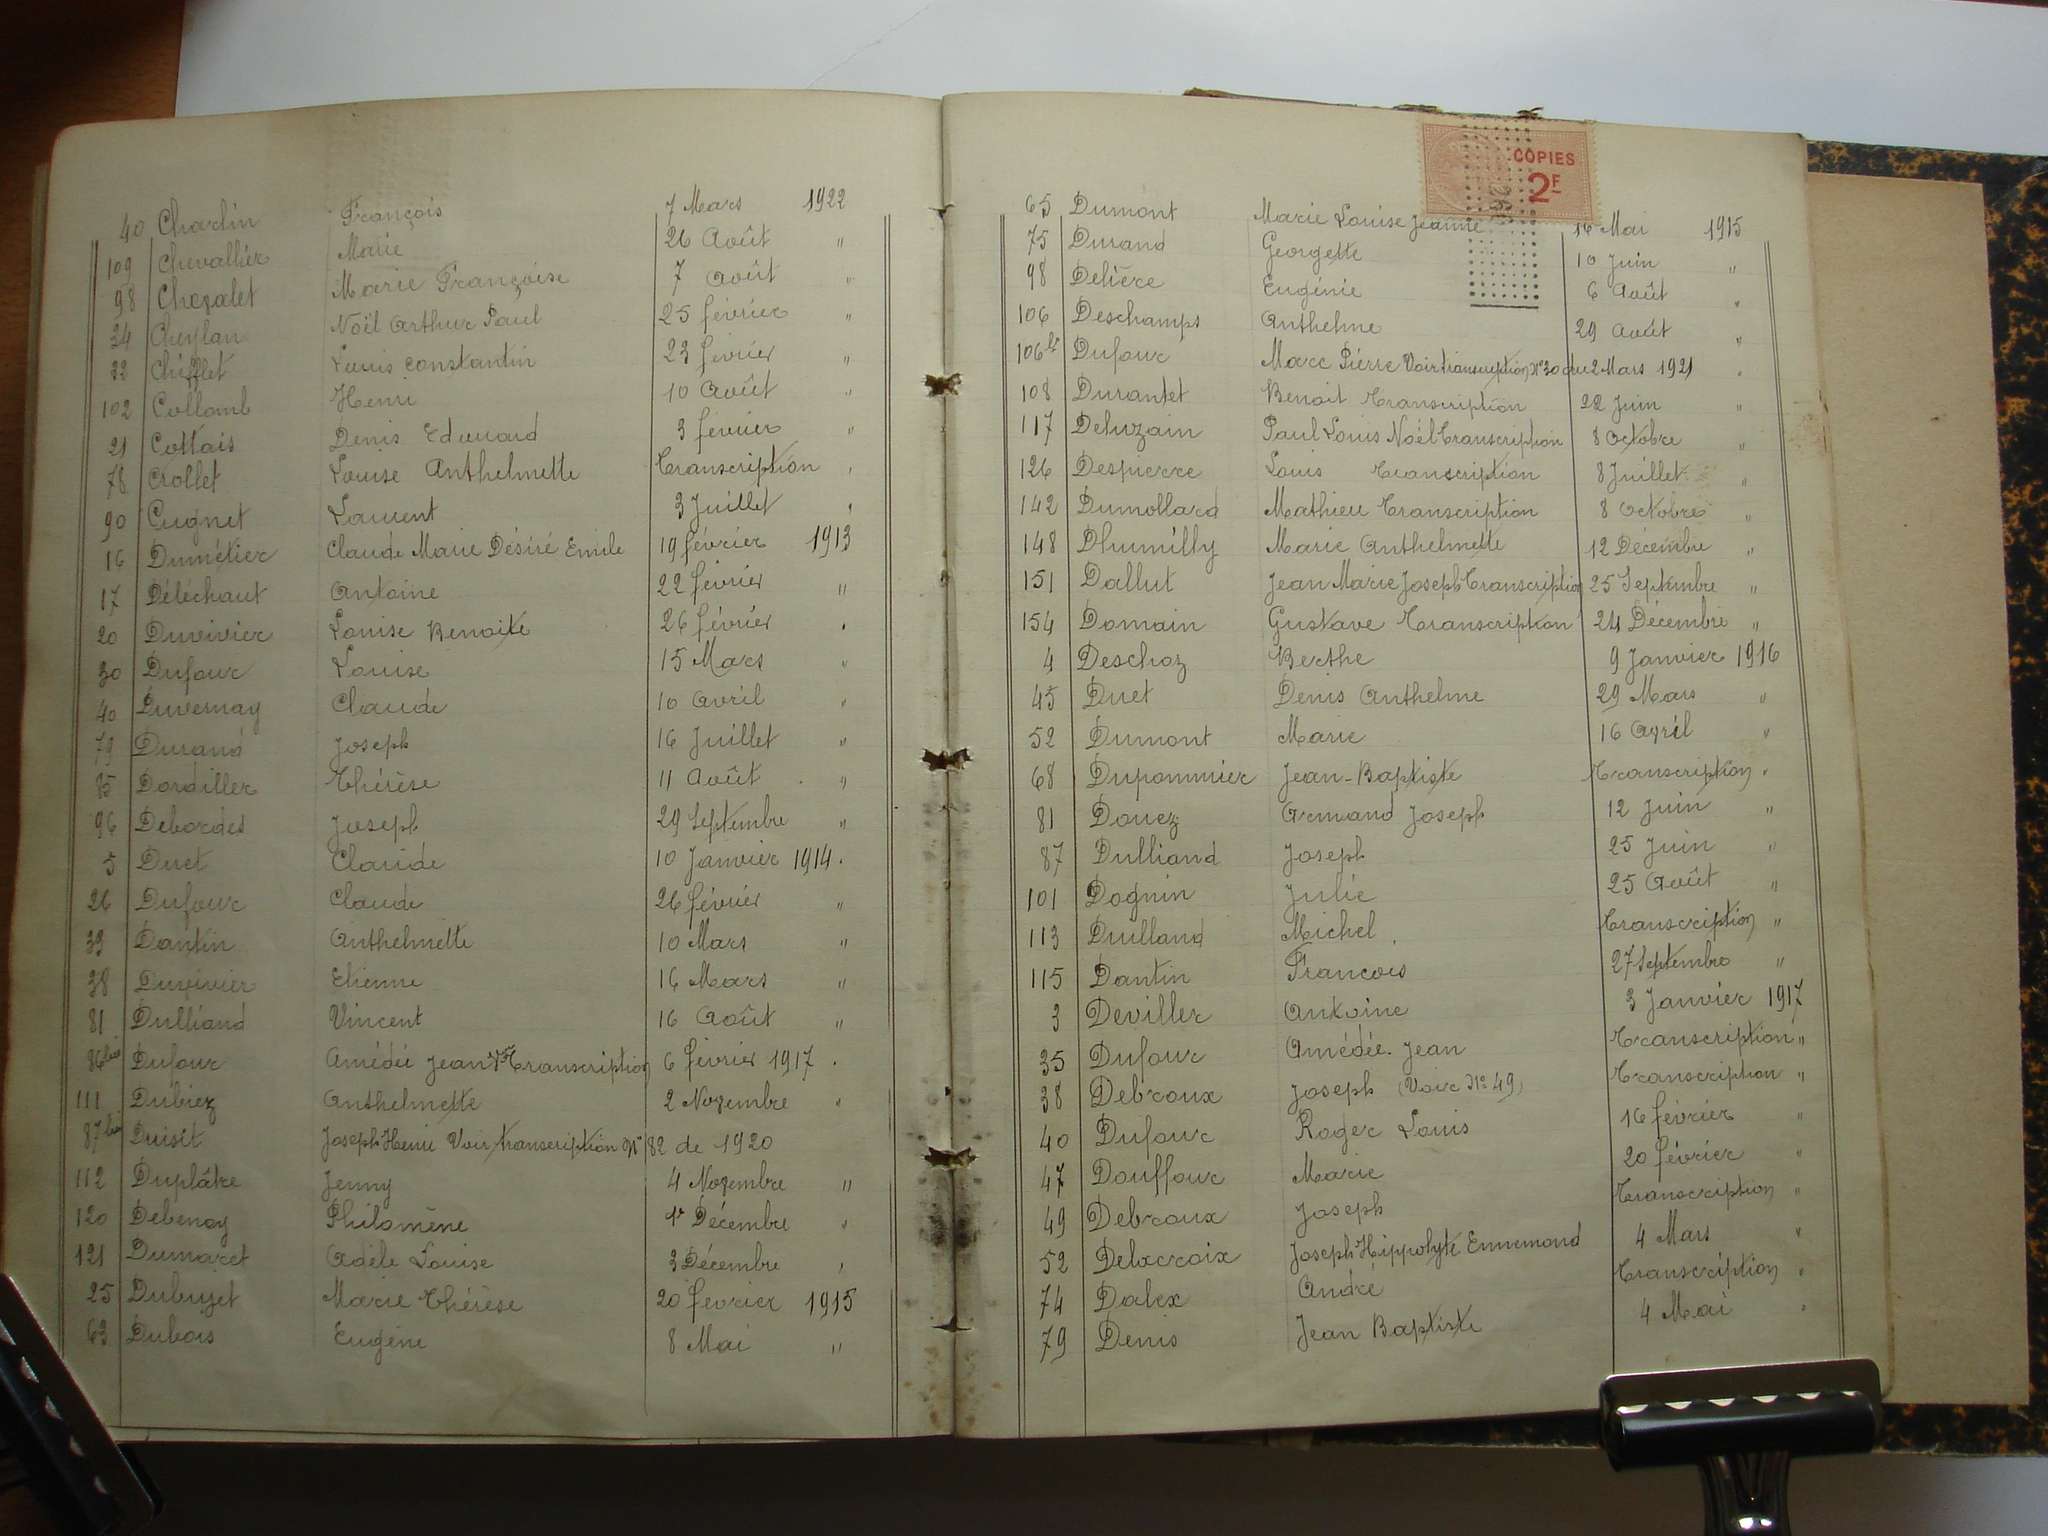 40 Chardin François 7 Mars 1922
109 Chevallier Marie 26 Août "
98 Chezalet Marie Françoise 7 Août "
24 Cheylan Noël Arthur Paul 25 février "
22 Chifflet Louis Constantin 23 février "
102 Collomb Henri 10 Août "
21 Cottais Denis Edouard 3 février "
78 Crollet Louise Anthelmette Transcription "
90 Cugnet Laurent 3 Juillet "
16 Dumétier Claude Marie Désiré Emile 19 février 1913
17 Déléchaut Antoine 22 février "
20 Duvivier Louise Benoite 26 février "
30 Dufour Louise 15 Mars "
40 Duvernay Claude 10 Avril "
79 Durand Joseph 16 Juillet "
85 Dordiller Thérèse 11 Août "
96 Debordes Joseph 29 Septembre "
5 Duet Claude 10 Janvier 1914
26 Dufour Claude 26 février "
33 Dantin Anthelmette 10 Mars "
38 Duvivier Etienne 16 Mars "
81 Dulliand Vincent 16 Août "
86bis Dufour Amédée Jean Transcription 6 février 1917
111 Dubiez Anthelmette 2 Novembre "
87bis Duisit Joseph Henri Voir transcription N° 82 de 1920
112 Duplâtre Jenny 4 Novembre "
120 Debenay Philomène 1er Décembre "
121 Dumaret Adèle Louise 3 Décembre "
25 Dubuget Marie Thérèse 20 février 1915
63 Dubois Eugène 8 Mai "
COPIES
2F
65 Dumont Marie Louise Jeanne 14 Mai 1915
75 Durand Georgette 10 Juin "
98 Delière Eugénie 6 Août "
106 Deschamps Anthelme 29 Août "
106bis Dufour Marc Pierre Voir transcription N° 30 du 2 Mars 1921 "
108 Durantet Benoit Transcription 22 Juin "
117 Deluzain Paul Louis Noël Transcription 8 Octobre "
126 Despierre Louis Transcription 8 Juillet "
142 Dumollard Mathieu Transcription 8 Octobre "
148 Dhumilly Marie Anthelmette 12 Décembre "
151 Dallut Jean Marie Joseph Transcription 25 Septembre "
154 Domain Gustave Transcription 24 Décembre "
4 Deschoz Berthe 9 Janvier 1916
45 Duet Denis Anthelme 29 Mars "
52 Dumont Marie 16 Avril "
68 Dupommier Jean-Baptiste Transcription "
81 Douez Armand Joseph 12 Juin "
87 Dulliand Joseph 25 Juin "
101 Dognin Julie 25 Août "
113 Dulland Michel Transcription "
115 Dantin Francois 27 Septembre "
3 Deviller Antoine 3 Janvier 1917
35 Dufour Amédée Jean Transcription "
38 Debroux Joseph (Voir N° 49) Transcription "
40 Dufour Roger Louis 16 février "
47 Douffour Marie 20 février "
49 Debroux Joseph Transcription "
52 Delacroix Joseph Hippolyte Ennemond 4 Mars "
74 Dalex André Transcription "
79 Denis Jean Baptiste 4 Mai "